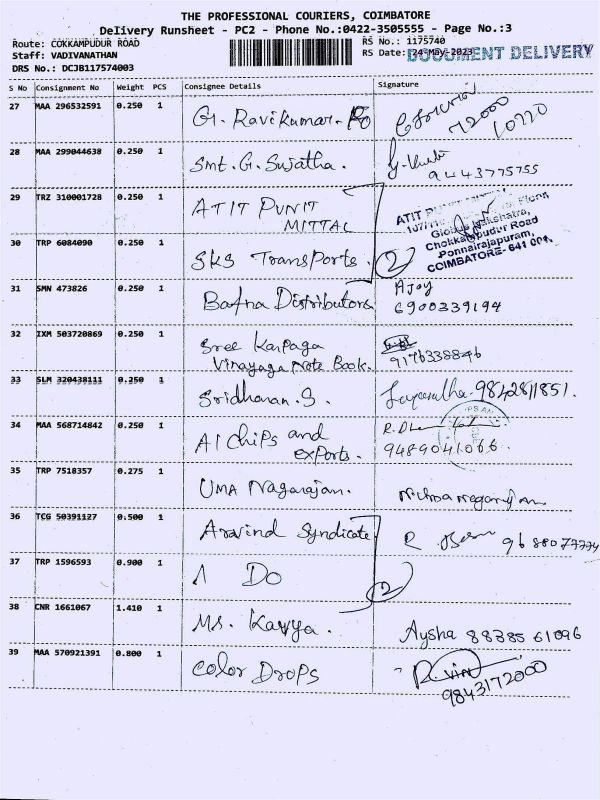 THE PROFESSIONAL COURIERS, COIMBATORE
Delivery Runsheet - PC2 - Phone No.:0422-3505555 - Page No.:3
Route: COKKAMPUDUR ROAD
Staff: VADIVANATHAN
DRS No.: DCJB117574003
RS No.: 1175740
RS Date: 24-May-2023
DOCUMENT DELIVERY
S No Consignment No Weight PCS Consignee Details Signature
27 MAA 296532591 0.250 1 G. Ravikumar. 72000 10720
28 MAA 299044638 0.250 1 Smt. G. Sujatha. 9443775755
29 TRZ 310001728 0.250 1 ATIT PUNIT
MITTAL
ATIT
Chokkampudur Road
Ponnairajapuram,
COIMBATORE- 641 001.
30 TRP 6084090 0.250 1 SKS Transports. 2
31 SMN 473826 0.250 1 Bafna Distributors Ajoy
6900339194
32 IXM 503720869 0.250 1 Sree Karpaga
Vinayaga Note Book. 9176338846
33 SLM 320438111 0.250 1 Sridharan. S. 9842811851.
34 MAA 568714842 0.250 1 A1 Chips and
exports. 9489041066.
35 TRP 7518357 0.275 1 UMA Nagarajan.
36 TCG 50391127 0.500 1 Aravind Syndicate R
37 TRP 1596593 0.900 1 1 Do 2
38 CNR 1661067 1.410 1 Ms. Kavya. Aysha 88385 61096
39 MAA 570921391 0.800 1 Color Drops
9843172000